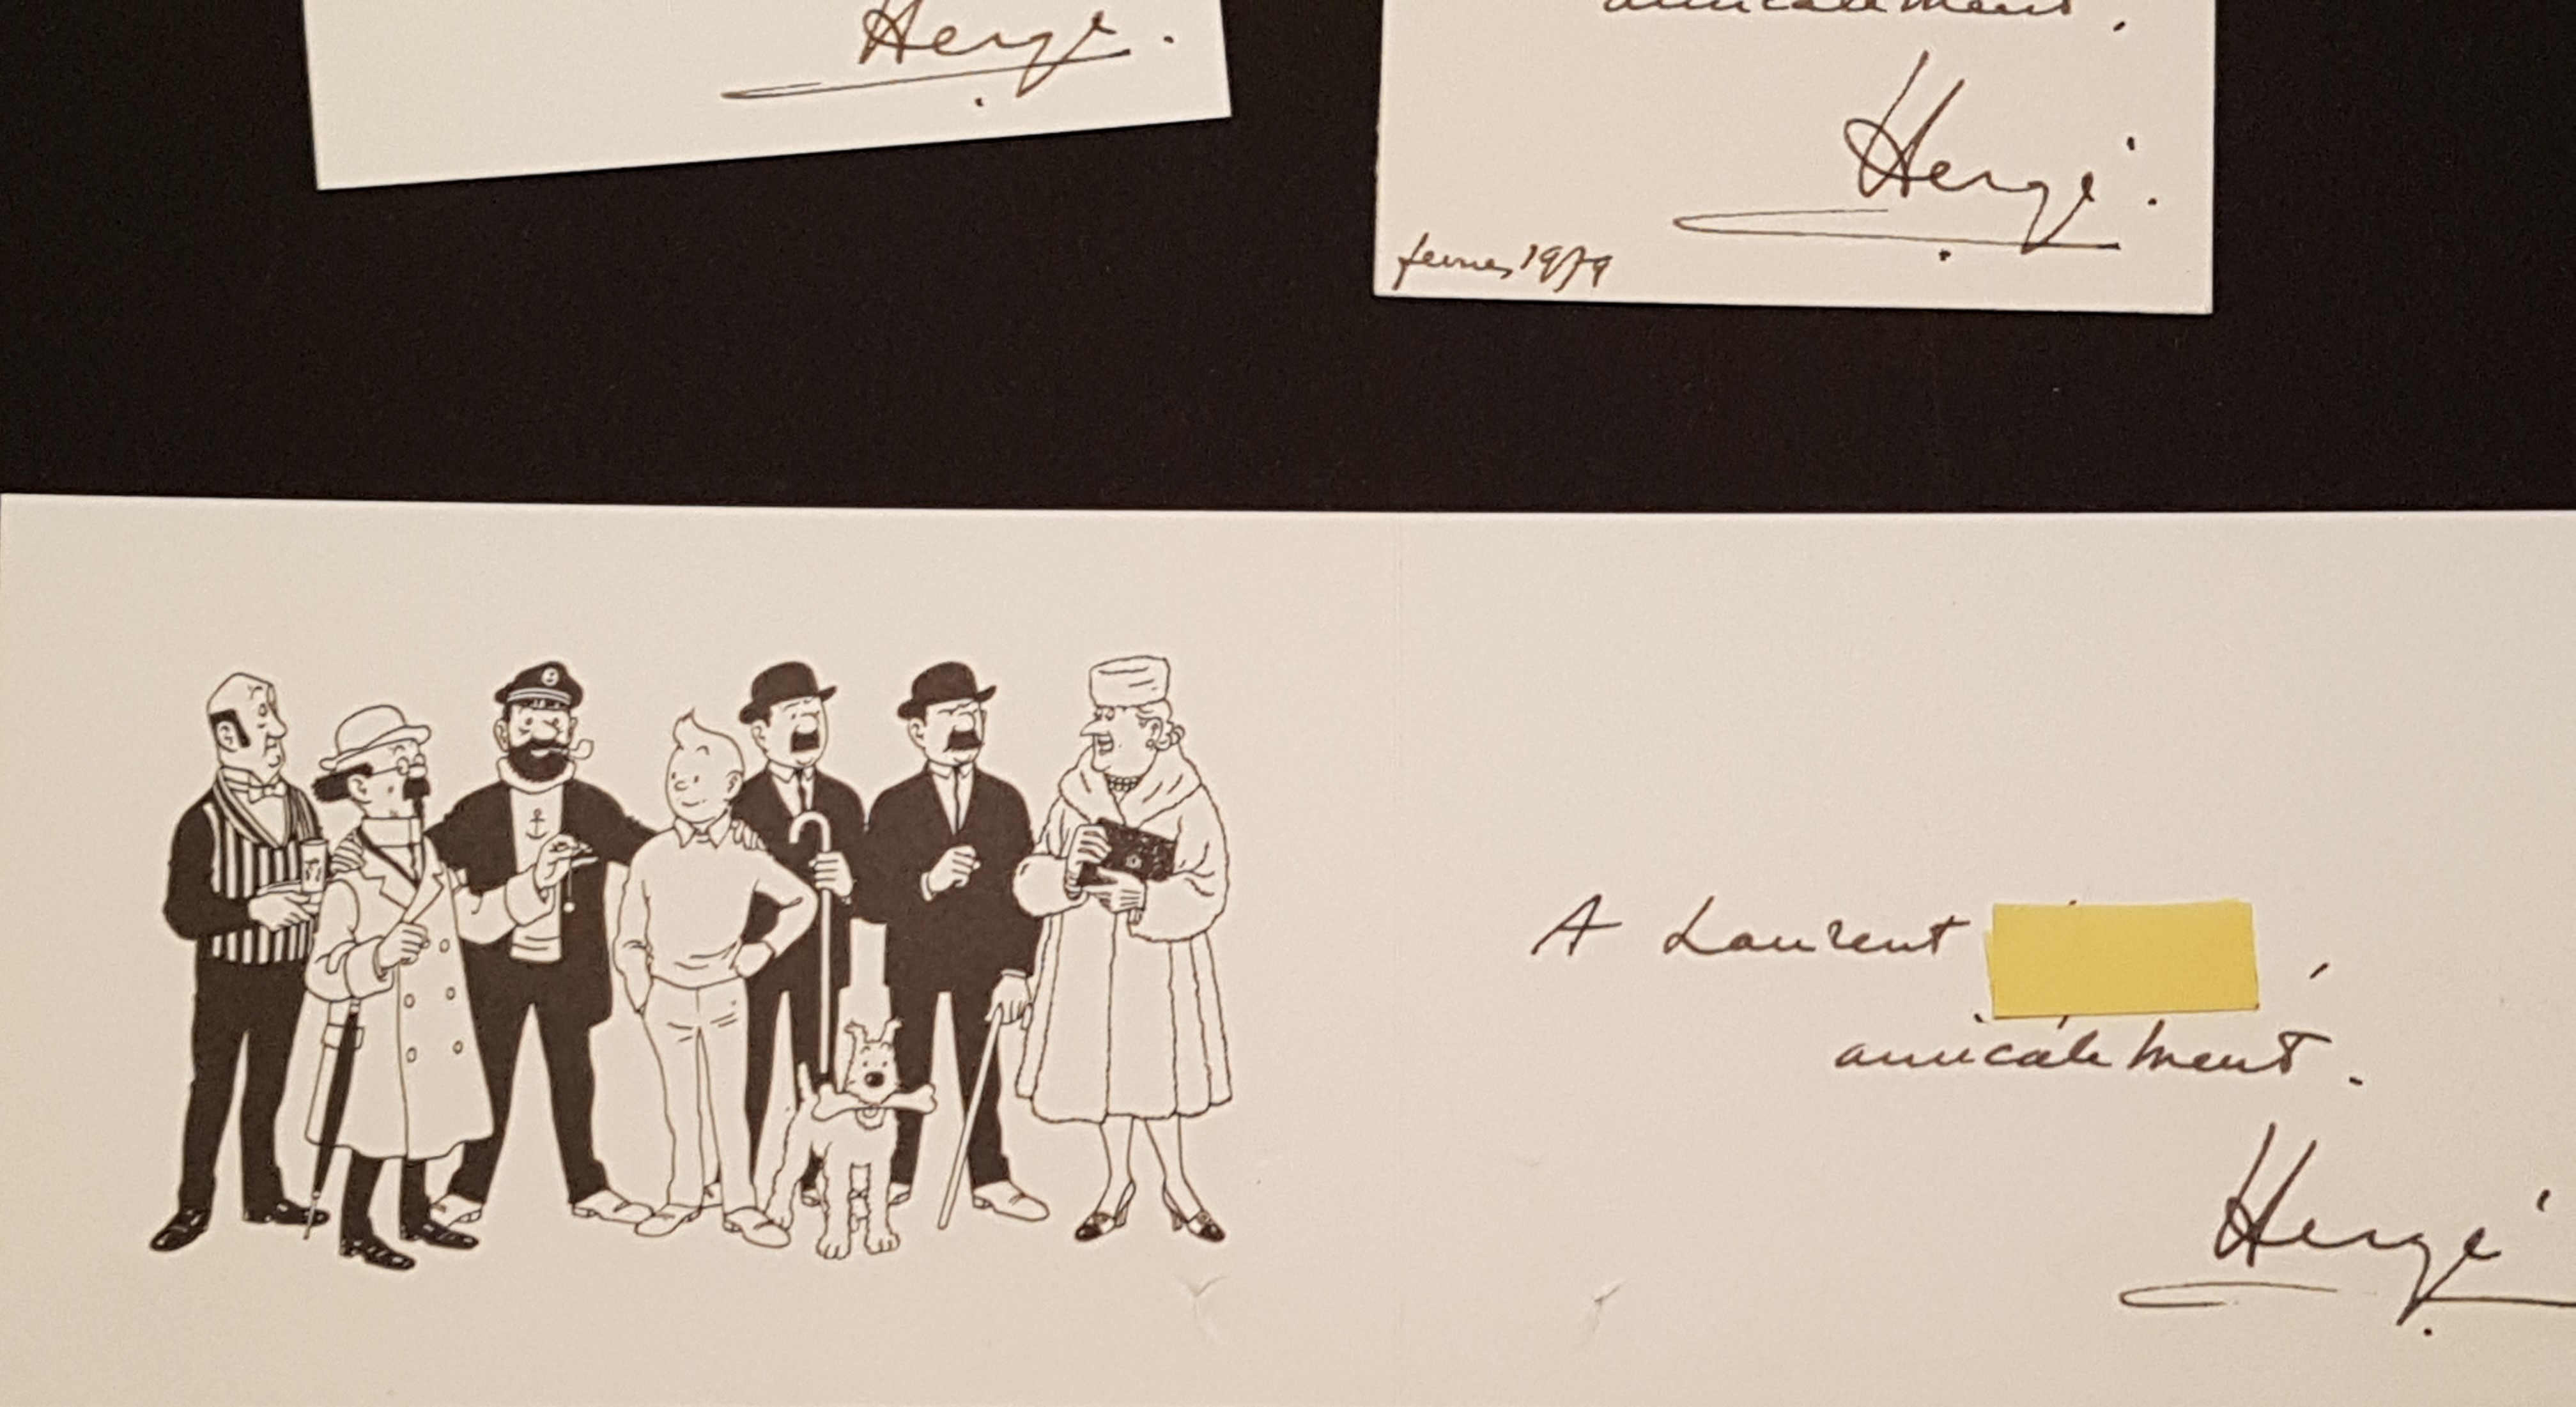 Hergé.
amicalement.
Hergé.
février 1979
A Laurent ,
amicalement.
Hergé